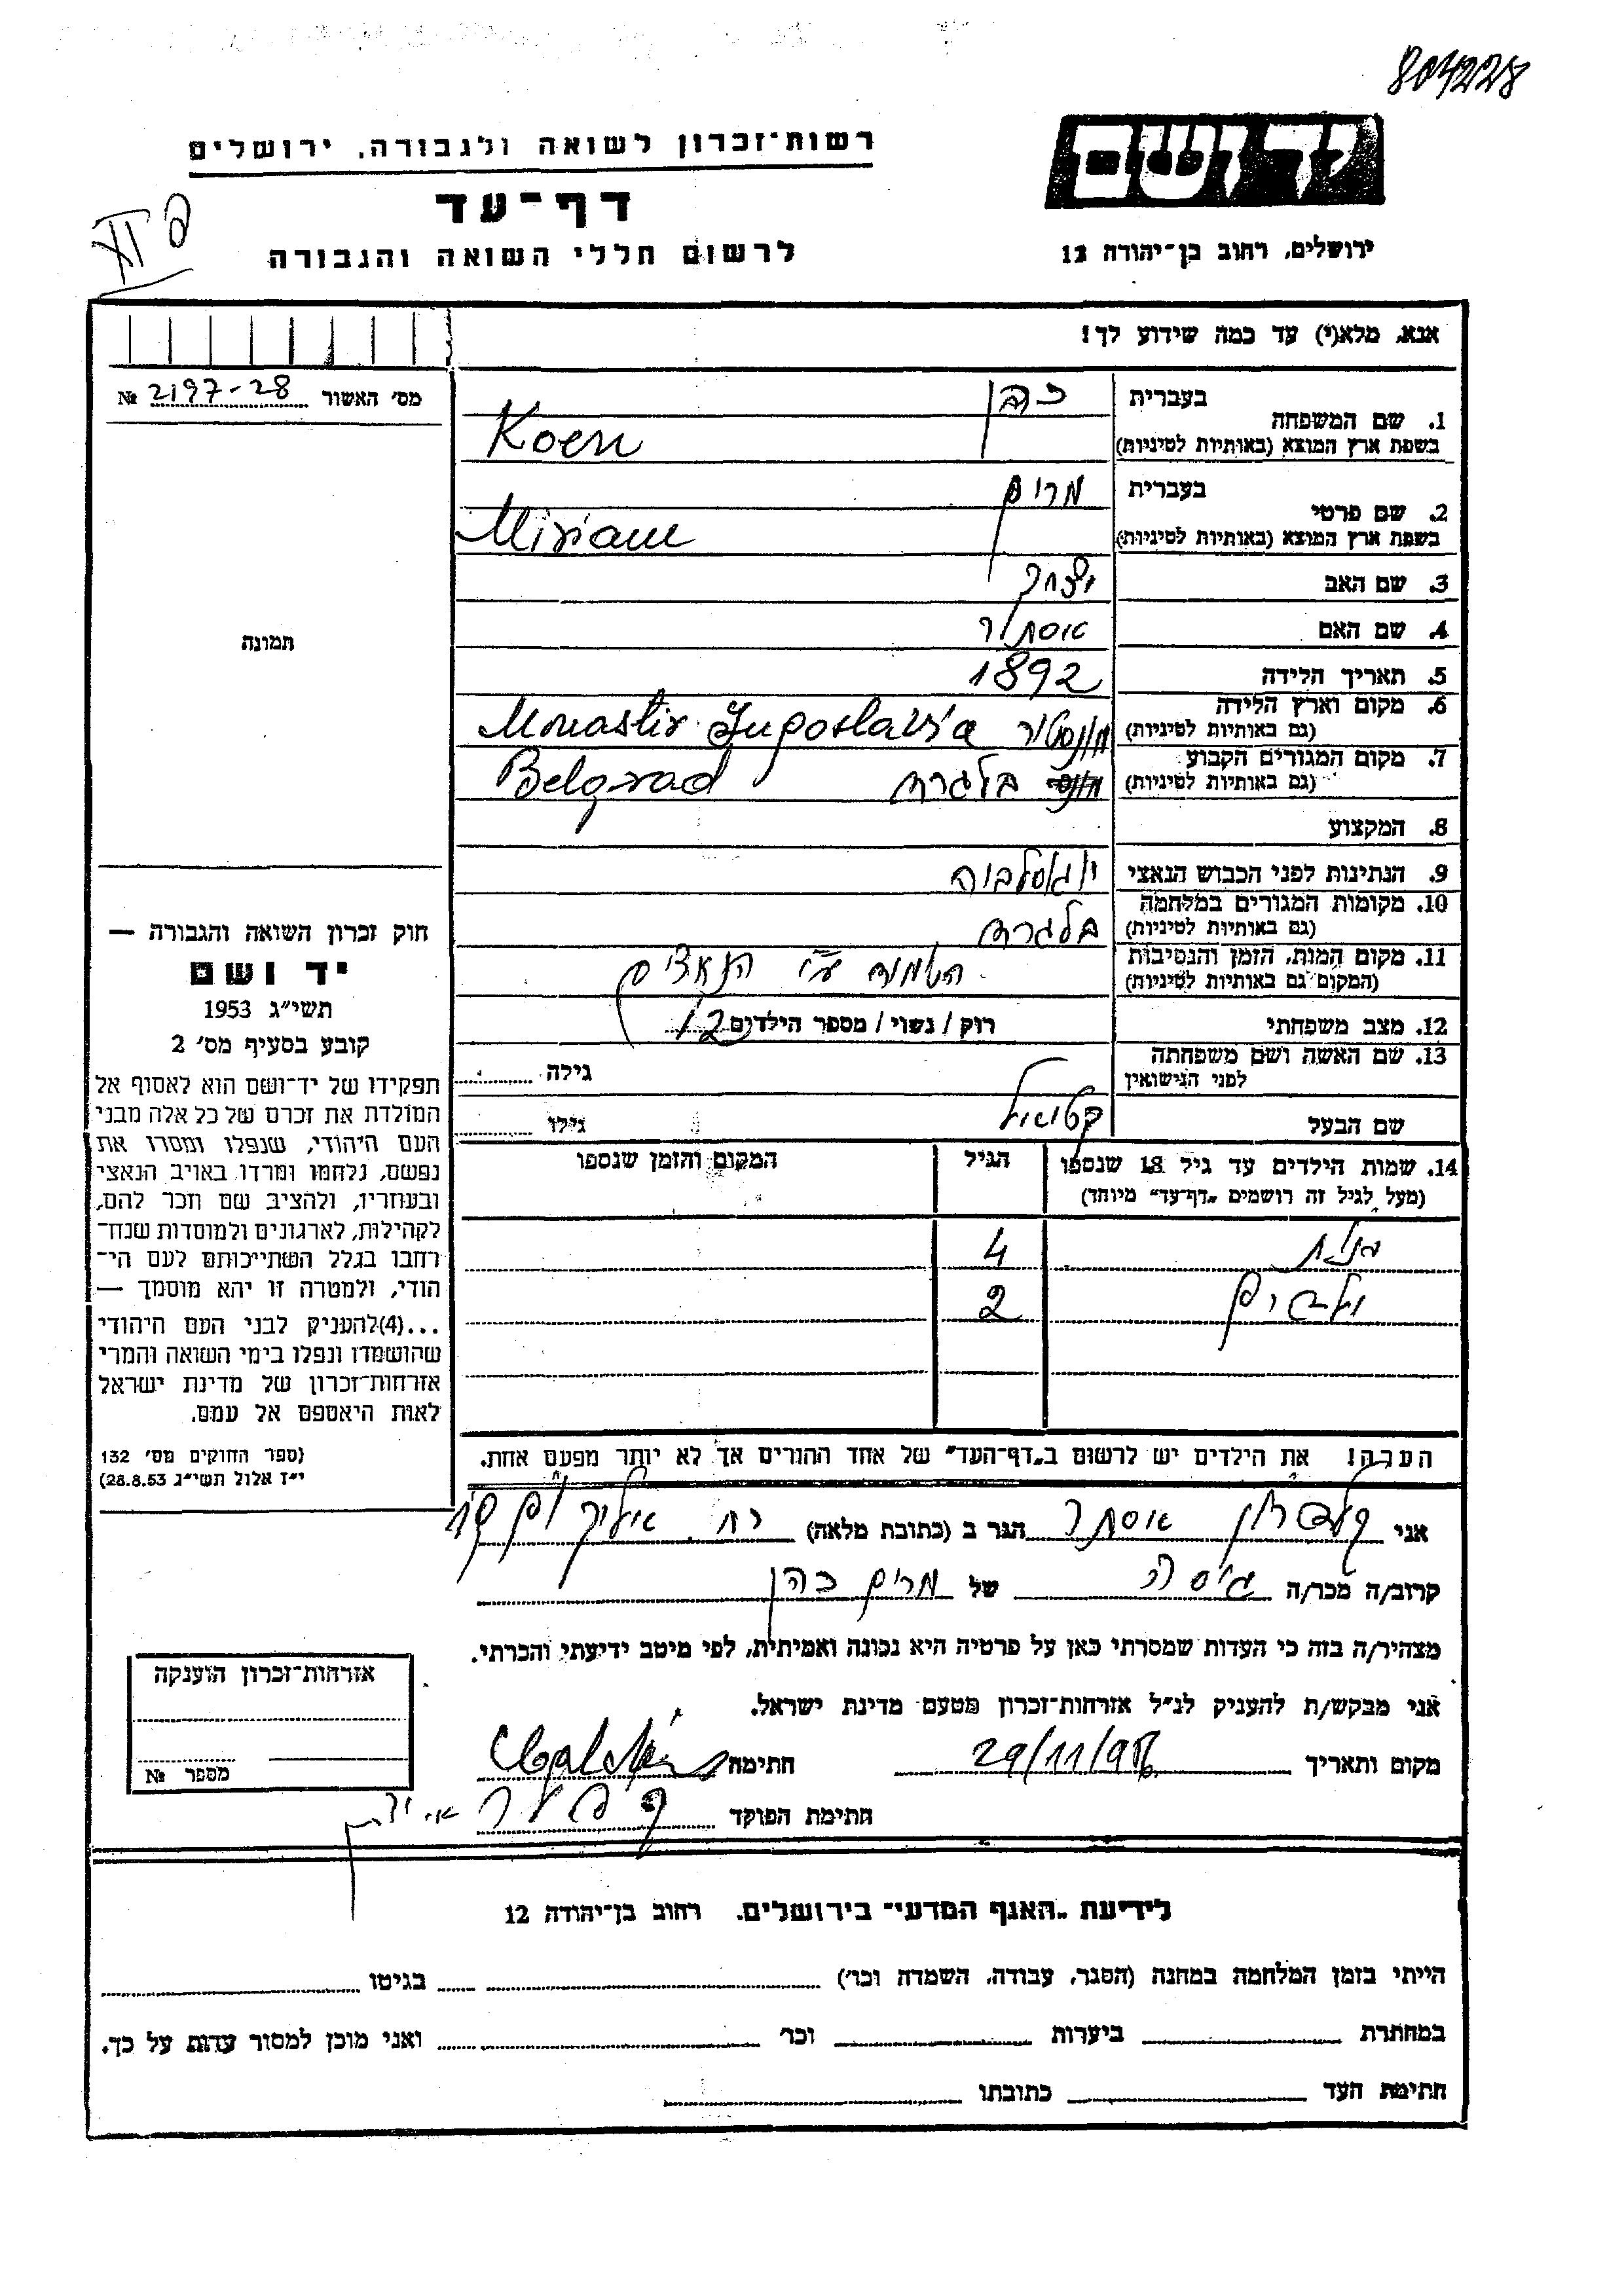 804228
יד ושם
רשות־זכרון לשואה ולגבורה, ירושלים
דף־עד
לרשום חללי השואה והגבורה
ירושלים, רחוב בן־יהודה 12
אנא, מלא(י) עד כמה שידוע לך!
מס׳ האשור № 2197-28
תמונה
1. שם המשפחה
בעברית כהן
בשפת ארץ המוצא (באותיות לטיניות) Koen
2. שם פרטי
בעברית מרים
בשפת ארץ המוצא (באותיות לטיניות) Miriam
3. שם האב יצחק
4. שם האם אסתר
5. תאריך הלידה 1892
6. מקום וארץ הלידה
(גם באותיות לטיניות) מונסטיר Monastir Jugoslavia
7. מקום המגורים הקבוע
(גם באותיות לטיניות) בלגרד Belgrad
8. המקצוע
9. הנתינות לפני הכבוש הנאצי יוגוסלביה
10. מקומות המגורים במלחמה
(גם באותיות לטיניות) בלגרד
11. מקום המות, הזמן והנסיבות
(המקום גם באותיות לטיניות) הושמדה ע״י הנאצים
12. מצב משפחתי רווק / נשוי / מספר הילדים 2
13. שם האשה ושם משפחתה
לפני הנישואין גילה
שם הבעל גילו
14. שמות הילדים עד גיל 18 שנספו
(מעל לגיל זה רושמים „דף־עד״ מיוחד)
הגיל
המקום והזמן שנספו
4
2
הערה! את הילדים יש לרשום ב„דף־העד״ של אחד ההורים אך לא יותר מפעם אחת.
חוק זכרון השואה והגבורה —
יד ושם
תשי״ג 1953
קובע בסעיף מס׳ 2
תפקידו של יד־ושם הוא לאסוף אל
המולדת את זכרם של כל אלה מבני
העם היהודי, שנפלו ומסרו את
נפשם, נלחמו ומרדו באויב הנאצי
ובעוזריו, ולהציב שם וזכר להם,
לקהילות, לארגונים ולמוסדות שנח־
רבו בגלל השתייכותם לעם הי־
הודי, ולמטרה זו יהא מוסמך —
...(4)להעניק לבני העם היהודי
שהושמדו ונפלו בימי השואה והמרי
אזרחות־זכרון של מדינת ישראל
לאות היאספם אל עמם.
(ספר החוקים מס׳ 132
י״ז אלול תשי״ג 28.8.53)
אני אסתר הגר ב (כתובת מלאה) רח׳
קרוב/ה מכר/ה גיסה של מרים כהן
מצהיר/ה בזה כי העדות שמסרתי כאן על פרטיה היא נכונה ואמיתית, לפי מיטב ידיעתי והכרתי.
אני מבקש/ת להעניק לנ״ל אזרחות־זכרון מטעם מדינת ישראל.
מקום ותאריך 29/11/98 חתימה
חתימת הפוקד
אזרחות־זכרון הוענקה
מספר №
לידיעת „האגף המדעי״ בירושלים. רחוב בן־יהודה 12
הייתי בזמן המלחמה במחנה (הסגר, עבודה, השמדה וכו׳) בגיטו
במחתרת ביערות וכו׳ ואני מוכן למסור עדות על כך.
חתימת העד כתובתו